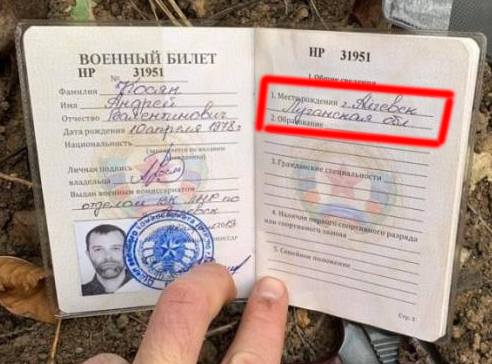 ВОЕННЫЙ БИЛЕТ
НР № 31951
Фамилия Просян
Имя Андрей
Отчество Валентинович
Дата рождения 10 апреля 1978 г
Национальность
(заполняется по желанию
владельца)
Личная подпись
владельца
Выдан военным комиссариатом
отделом ВК ЛНР по
НР 31951
I. Общие сведения
1. Место рождения г. Алчевск
Луганская обл
2. Образование
3. Гражданские специальности
4. Наличие первого спортивного разряда
или спортивного звания
5. Семейное положение
Стр. 1